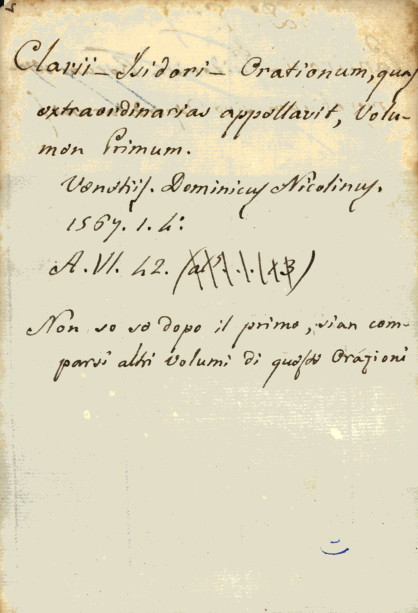 Clarii - Isidori - Orationum, quas
extraordinarias appellavit, Volu-
men Primum.
Venetiis. Dominicus Nicolinus.
1567. 1. 4:
A. VI. 42.
Non so se dopo il primo, sian com-
parsi altri Volumi di queste Orazioni